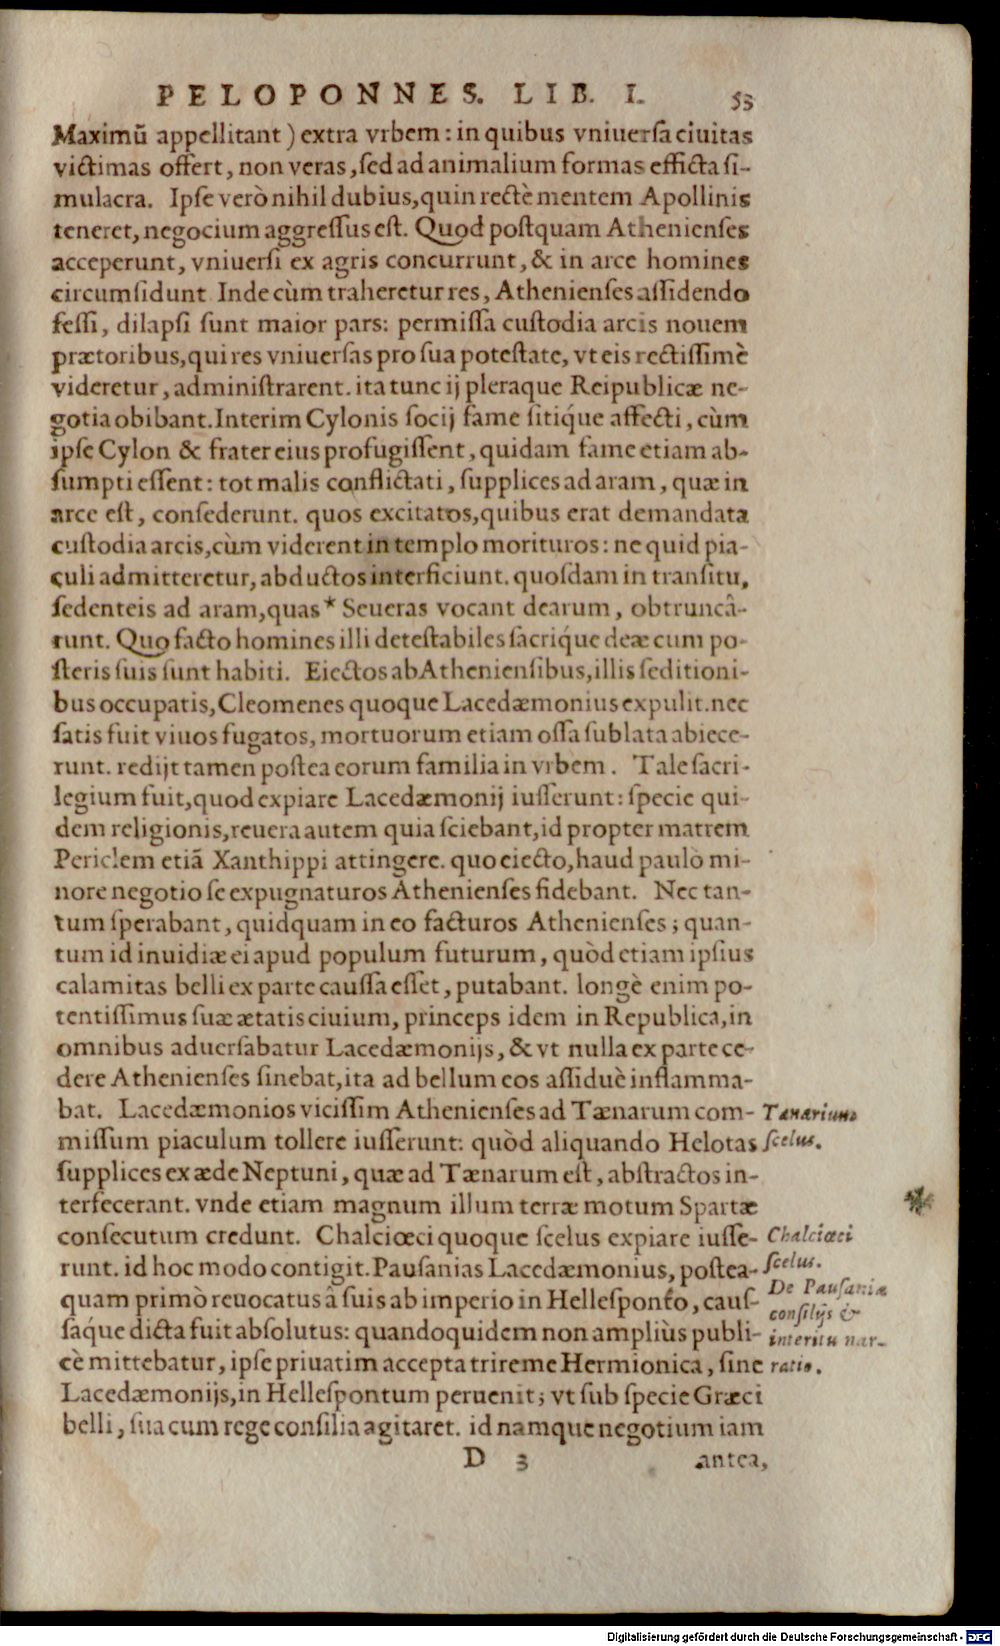 PELOPONNES. LIB. I. 53
Maximũ appellitant) extra vrbem: in quibus vniuersa ciuitas
victimas offert, non veras, sed ad animalium formas efficta si-
mulacra. Ipse verò nihil dubius, quin rectè mentem Apollinis
teneret, negocium aggressus est. Quod postquam Athenienses
acceperunt, vniuersi ex agris concurrunt, & in arce homines
circumsidunt Inde cùm traheretur res, Athenienses assidendo
fessi, dilapsi sunt maior pars: permissa custodia arcis nouem
prætoribus, qui res vniuersas pro sua potestate, vt eis rectissimè
videretur, administrarent. ita tunc ij pleraque Reipublicæ ne-
gotia obibant. Interim Cylonis socij fame sitiq́ue affecti, cùm
ipse Cylon & frater eius profugissent, quidam fame etiam ab-
sumpti essent: tot malis conflictati, supplices ad aram, quæ in
arce est, consederunt. quos excitatos, quibus erat demandata
custodia arcis, cùm viderent in templo morituros: ne quid pia-
culi admitteretur, abductos interficiunt. quosdam in transitu,
sedenteis ad aram, quas * Seueras vocant dearum, obtruncâ-
runt. Quo facto homines illi detestabiles sacriq́ue deæ cum po-
steris suis sunt habiti. Eiectos ab Atheniensibus, illis seditioni-
bus occupatis, Cleomenes quoque Lacedæmonius expulit. nec
satis fuit viuos fugatos, mortuorum etiam ossa sublata abiece-
runt. redijt tamen postea eorum familia in vrbem. Tale sacri-
legium fuit, quod expiare Lacedæmonij iusserunt: specie qui-
dem religionis, reuera autem quia sciebant, id propter matrem
Periclem etiã Xanthippi attingere. quo eiecto, haud paulò mi-
nore negotio se expugnaturos Athenienses fidebant. Nec tan-
tum sperabant, quidquam in eo facturos Athenienses; quan-
tum id inuidiæ ei apud populum futurum, quòd etiam ipsius
calamitas belli ex parte caussa esset, putabant. longè enim po-
tentissimus suæ ætatis ciuium, princeps idem in Republica, in
omnibus aduersabatur Lacedæmonijs, & vt nulla ex parte ce-
dere Athenienses sinebat, ita ad bellum eos assiduè inflamma-
bat. Lacedæmonios vicissim Athenienses ad Tænarum com-
missum piaculum tollere iusserunt: quòd aliquando Helotas
supplices ex æde Neptuni, quæ ad Tænarum est, abstractos in-
terfecerant. vnde etiam magnum illum terræ motum Spartæ
consecutum credunt. Chalciœci quoque scelus expiare iusse-
runt. id hoc modo contigit. Pausanias Lacedæmonius, postea-
quam primò reuocatus â suis ab imperio in Hellesponto, caus-
saq́ue dicta fuit absolutus: quandoquidem non ampliùs publi-
cè mittebatur, ipse priuatim accepta trireme Hermionica, sine
Lacedæmonijs, in Hellespontum peruenit; vt sub specie Græci
belli, sua cum rege consilia agitaret. id namque negotium iam
D 3 antea,
Tænarium
scelus.
Chalciœci
scelus.
De Pausaniæ
consilijs &
interitu nar-
ratio.
Digitalisierung gefördert durch die Deutsche Forschungsgemeinschaft - DFG